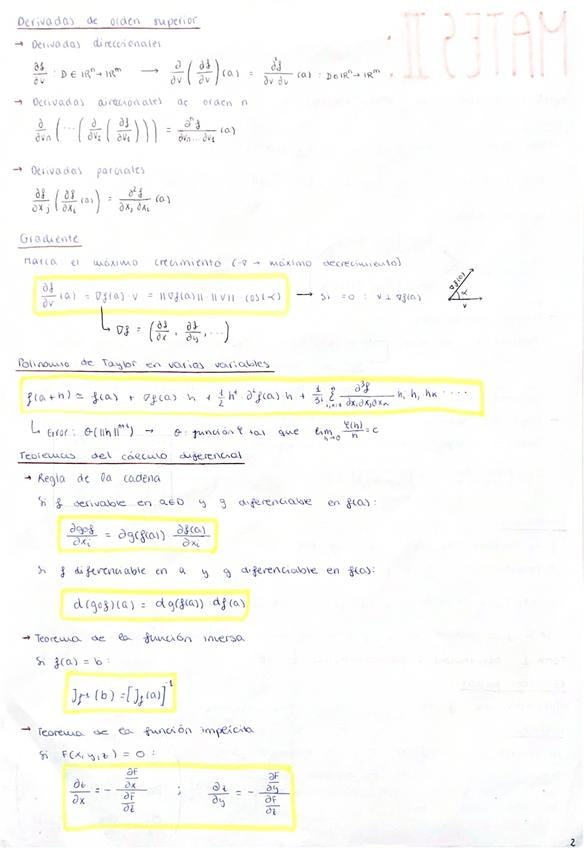 MATES II:
Derivadas de orden superior
→ Derivadas direccionales
∂f/∂v : D ∈ ℝⁿ → ℝᵐ ⟶ ∂/∂v (∂f/∂v)(a) = ∂²f/∂v ∂v (a) : D ∈ ℝⁿ → ℝᵐ
→ Derivadas direccionales de orden n
∂/∂vₙ (⋯(∂/∂v₂ (∂f/∂v₁))) = ∂ⁿf/∂vₙ...∂v₁ (a)
→ Derivadas parciales
∂f/∂xⱼ (∂f/∂xᵢ (a)) = ∂²f/∂xⱼ ∂xᵢ (a)
Gradiente
Marca el máximo crecimiento (-∇ → máximo decrecimiento)
∂f/∂v (a) = ∇f(a) · v = ||∇f(a)|| · ||v|| · cos(α) ⟶ Si = 0 : v ⊥ ∇f(a)
∇f(a) α v
↳ ∇f = (∂f/∂x, ∂f/∂y, ...)
Polinomio de Taylor en varias variables
f(a+h) ≃ f(a) + ∇f(a) · h + 1/2 hᵗ ∂²f(a) · h + 1/3! Σ ∂³f/∂xᵢ∂xⱼ∂xₖ hᵢ hⱼ hₖ ....
↳ Error: Θ(||h||ᵐ⁺¹) → Θ: función φ tal que lim h→0 φ(h)/h = c
Teoremas del cálculo diferencial
→ Regla de la cadena
Si f derivable en a∈D y g diferenciable en f(a):
∂g∘f/∂xᵢ = ∂g(f(a)) ∂f(a)/∂xᵢ
Si f diferenciable en a y g diferenciable en f(a):
d(g∘f)(a) = dg(f(a)) df(a)
→ Teorema de la función inversa
Si f(a) = b:
J_f⁻¹(b) = [J_f(a)]⁻¹
→ Teorema de la función implícita
Si F(x,y,z) = 0 :
∂z/∂x = - (∂F/∂x)/(∂F/∂z) ; ∂z/∂y = - (∂F/∂y)/(∂F/∂z)
2